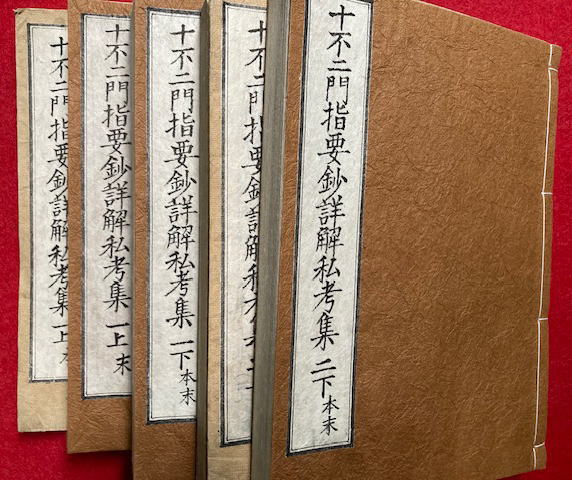 十不二門指要鈔詳解私考集 二下 本末
十不二門指要鈔詳解私
十不二門指要鈔詳解私考集 一下 本末
十不二門指要鈔詳解私考集 一上 末
十不二門指要鈔詳解私考集 一上